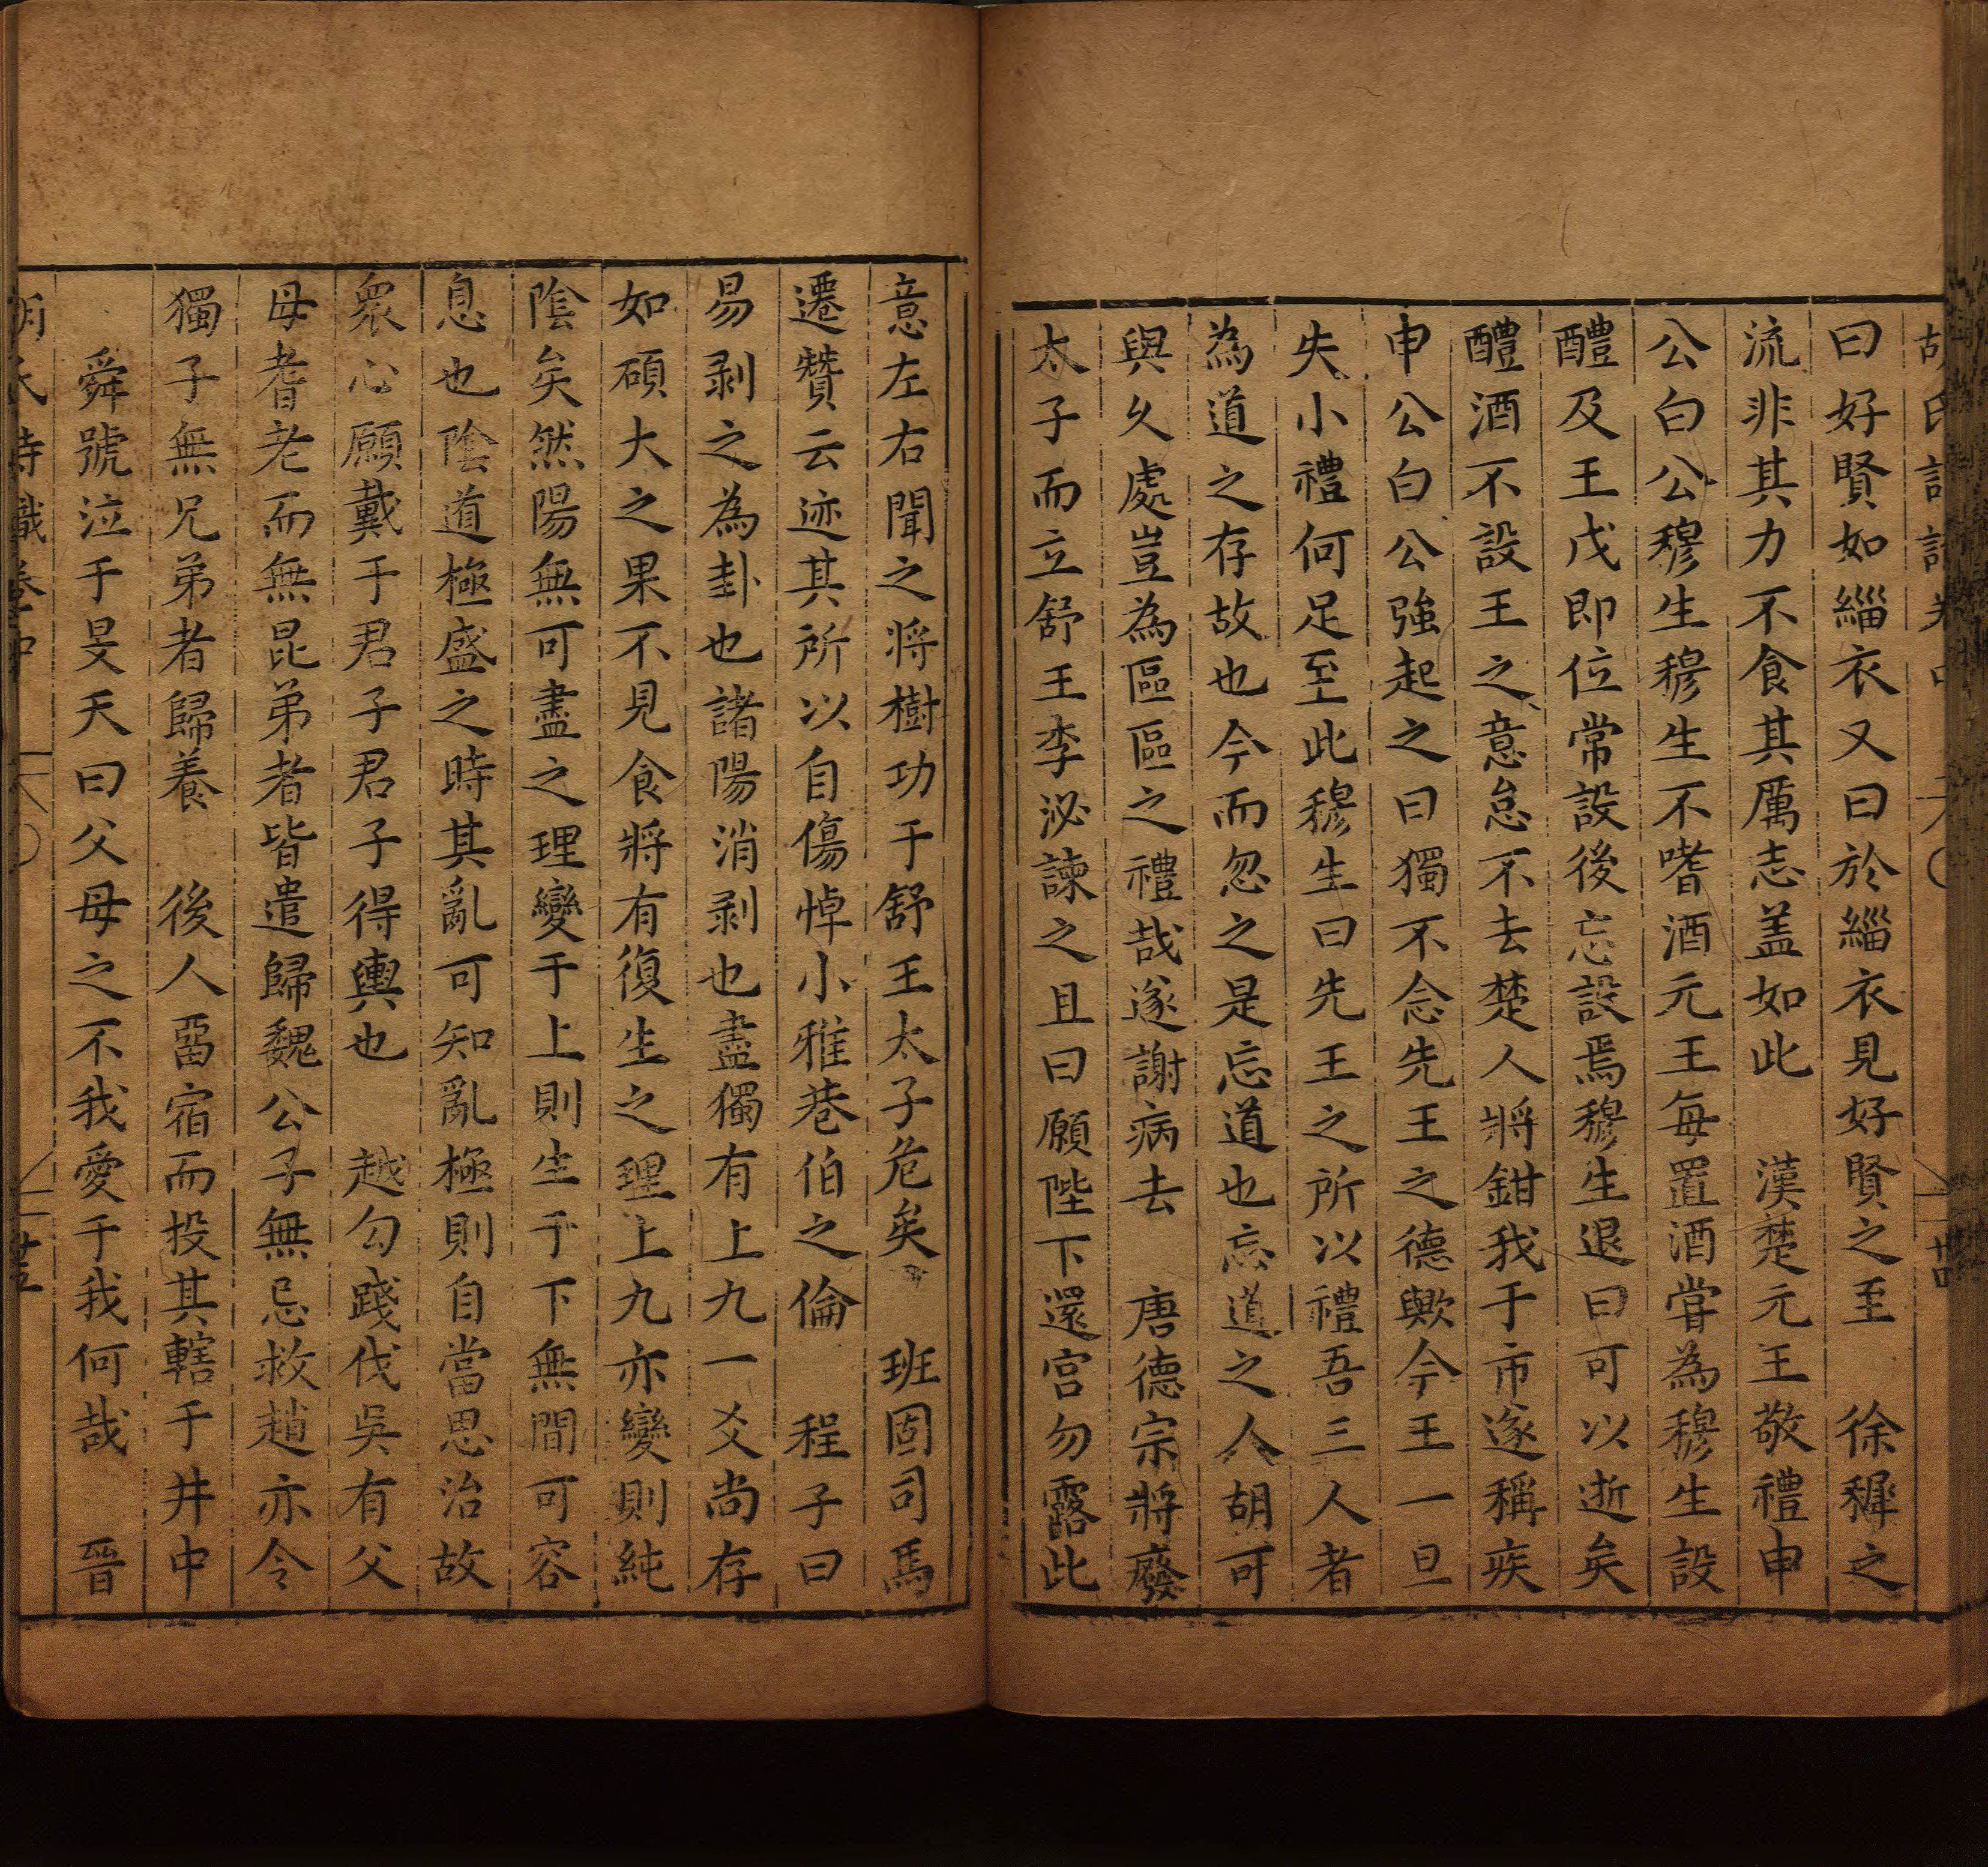 曰好賢如緇衣又曰於緇衣見好賢之至　徐穉之
流非其力不食其厲志盖如此　漢楚元王敬禮申
公白公穆生穆生不嗜酒元王每置酒甞為穆生設
醴及王戊即位常設後忘設焉穆生退曰可以逝矣
醴酒不設王之意怠不去楚人將鉗我于市遂稱疾
申公白公強起之曰獨不念先王之德歟今王一旦
失小禮何足至此穆生曰先王之所以禮吾三人者
為道之存故也今而忽之是忘道也忘道之人胡可
與久處豈為區區之禮哉遂謝病去　唐德宗將廢
太子而立舒王李泌諫之且曰願陛下還宮勿露此
意左右聞之將樹功于舒王太子危矣　班固司馬
遷贊云迹其所以自傷悼小雅巷伯之倫　程子曰
易剥之為卦也諸陽消剥也盡獨有上九一爻尚存
如碩大之果不見食將有復生之理上九亦變則純
陰矣然陽無可盡之理變于上則生于下無間可容
息也陰道極盛之時其亂可知亂極則自當思治故
衆心願戴于君子君子得輿也　越勾踐伐吳有父
母耆老而無昆弟者皆遣歸魏公子無忌救趙亦令
獨子無兄弟者歸養　後人畱宿而投其轄于井中
舜號泣于旻天曰父母之不我愛于我何哉　晉